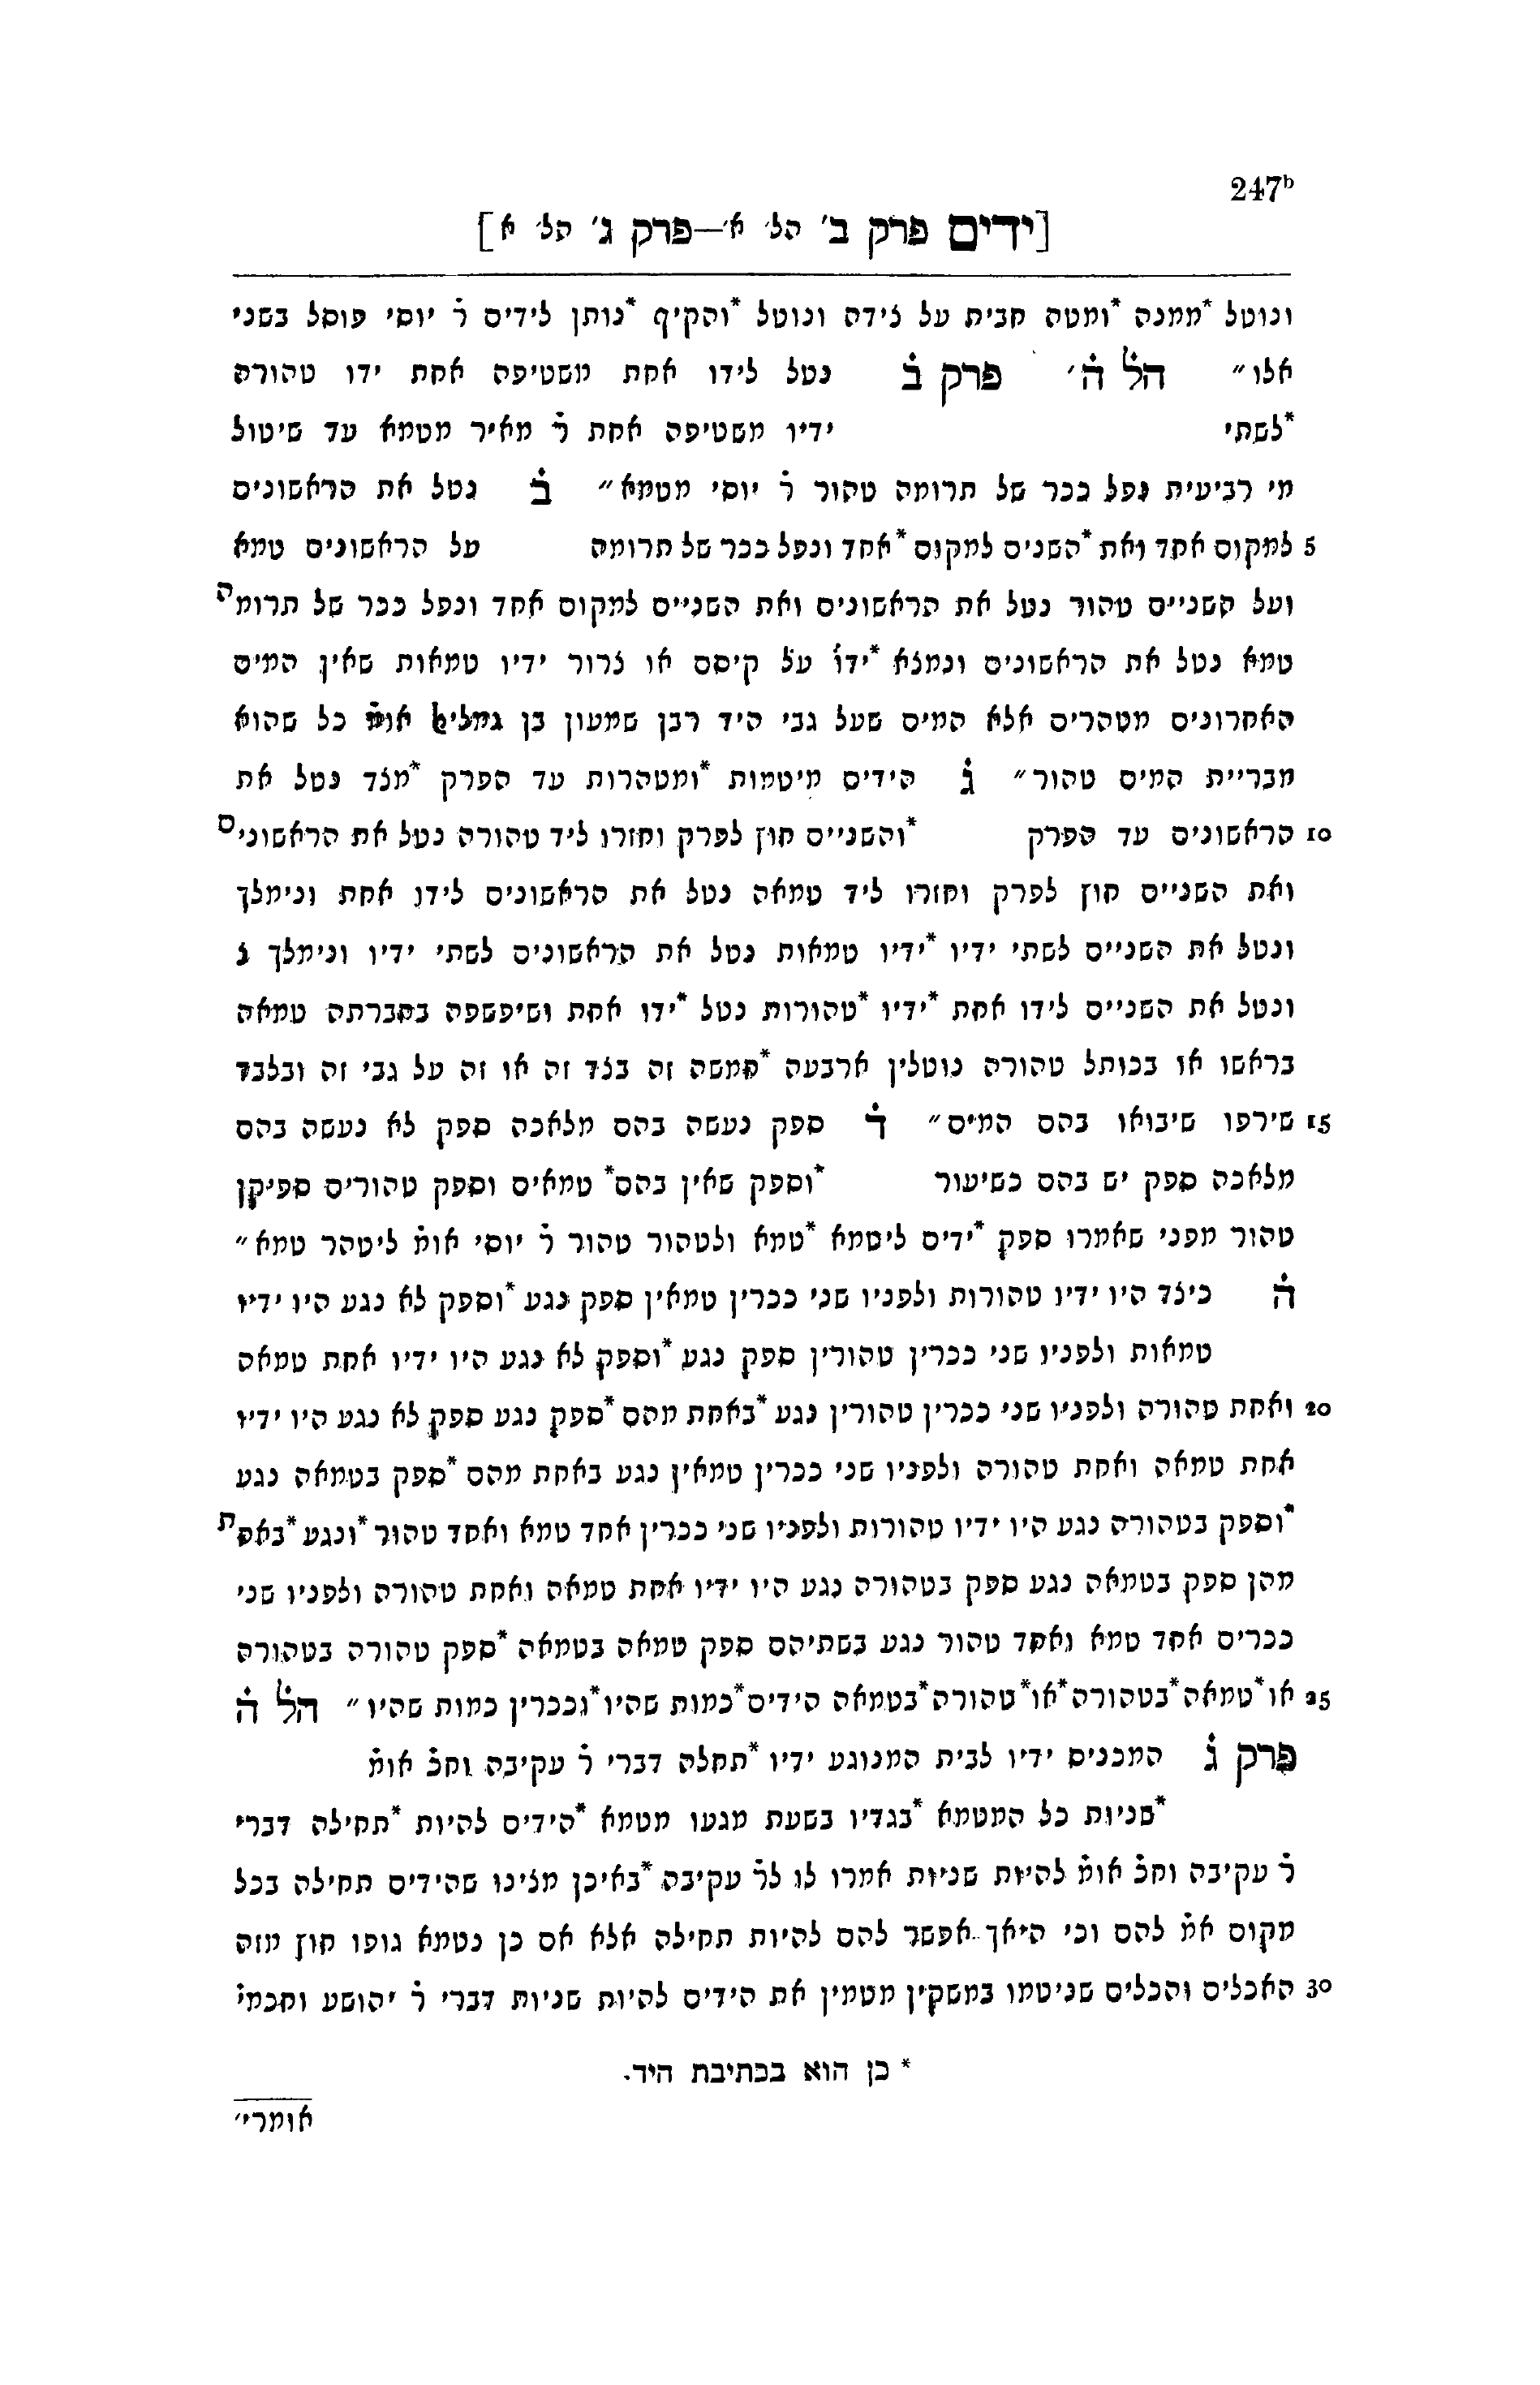 247ᵇ
[ידים פרק ב׳ הל׳ א׳—פרק ג׳ הל׳ א]
ונוטל *ממנה *ומטה חבית על צידה ונוטל *והקיף *נותן לידים ר̇ יוסי פוסל בשני
אלו״ הל̇ ה̇׳ פרק ב̇ נטל לידו אחת משטיפה אחת ידו טהורה
*לשתי ידיו משטיפה אחת ר̇ מאיר מטמא עד שיטול
מי רביעית נפל ככר של תרומה טהור ר̇ יוסי מטמא״ ב̇ נטל את הראשונים
5 למקום אחד ואת *השנים למקום *אחד ונפל ככר של תרומה על הראשונים טמא
ועל השניים טהור נטל את הראשונים ואת השניים למקום אחד ונפל ככר של תרומה
טמא נטל את הראשונים ונמצא *ידו̇ על קיסם או צרור ידיו טמאות שאין המים
האחרונים מטהרים אלא המים שעל גבי היד רבן שמעון בן גמליאל אומ̇ כל שהוא
מבריית המים טהור״ ג̇ הידים מיטמות *ומטהרות עד הפרק *מצד נטל את
10 הראשונים עד הפרק *והשניים חוץ לפרק וחזרו ליד טהורה נטל את הראשונים
ואת השניים חוץ לפרק וחזרו ליד טמאה נטל את הראשונים לידו אחת ונימלך
ונטל את השניים לשתי ידיו *ידיו טמאות נטל את הראשונים לשתי ידיו ונימלך צ
ונטל את השניים לידו אחת *ידיו *טהורות נטל *ידו אחת ושיפשפה בחברתה טמאה
בראשו או בכותל טהורה נוטלין ארבעה *חמשה זה בצד זה או זה על גבי זה ובלבד
15 שירפו שיבואו בהם המים״ ד̇ ספק נעשה בהם מלאכה ספק לא נעשה בהם
מלאכה ספק יש בהם כשיעור *וספק שאין בהם* טמאים וספק טהורים ספיקן
טהור מפני שאמרו ספק *ידים ליטמא *טמא ולטהור טהור ר̇ יוסי אומ̇ ליטהר טמא״
ה̇ כיצד היו ידיו טהורות ולפניו שני ככרין טמאין ספק נגע *וספק לא נגע היו ידיו
טמאות ולפניו שני ככרין טהורין ספק נגע *וספק לא נגע היו ידיו אחת טמאה
20 ואחת טהורה ולפניו שני ככרין טהורין נגע *באחת מהם *ספק נגע ספק לא נגע היו ידיו
אחת טמאה ואחת טהורה ולפניו שני ככרין טמאין נגע באחת מהם *ספק בטמאה נגע
*וספק בטהורה נגע היו ידיו טהורות ולפניו שני ככרין אחד טמא ואחד טהור *ונגע *באחת
מהן ספק בטמאה נגע ספק בטהורה נגע היו ידיו אחת טמאה ואחת טהורה ולפניו שני
ככרים אחד טמא ואחד טהור נגע בשתיהם ספק טמאה בטמאה *ספק טהורה בטהורה
25 או *טמאה *בטהורה *או *טהורה *בטמאה הידים *כמות שהיו *וככרין כמות שהיו״ הל̇ ה̇
פרק ג̇ המכניס ידיו לבית המנוגע ידיו *תחלה דברי ר̇ עקיבה וחכ̇ אומ̇
*שניות כל המטמא *בגדיו בשעת מגעו מטמא *הידים להיות *תחילה דברי
ר̇ עקיבה וחכ̇ אומ̇ להיות שניות אמרו לו לר̇ עקיבה *באיכן מצינו שהידים תחילה בכל
מקום אמ̇ להם וכי היאך אפשר להם להיות תחילה אלא אם כן נטמא גופו חוץ מזה
30 האכלים והכלים שניטמו במשקין מטמין את הידים להיות שניות דברי ר̇ יהושע וחכמי̇
* כן הוא בכתיבת היד.
אומרי׳